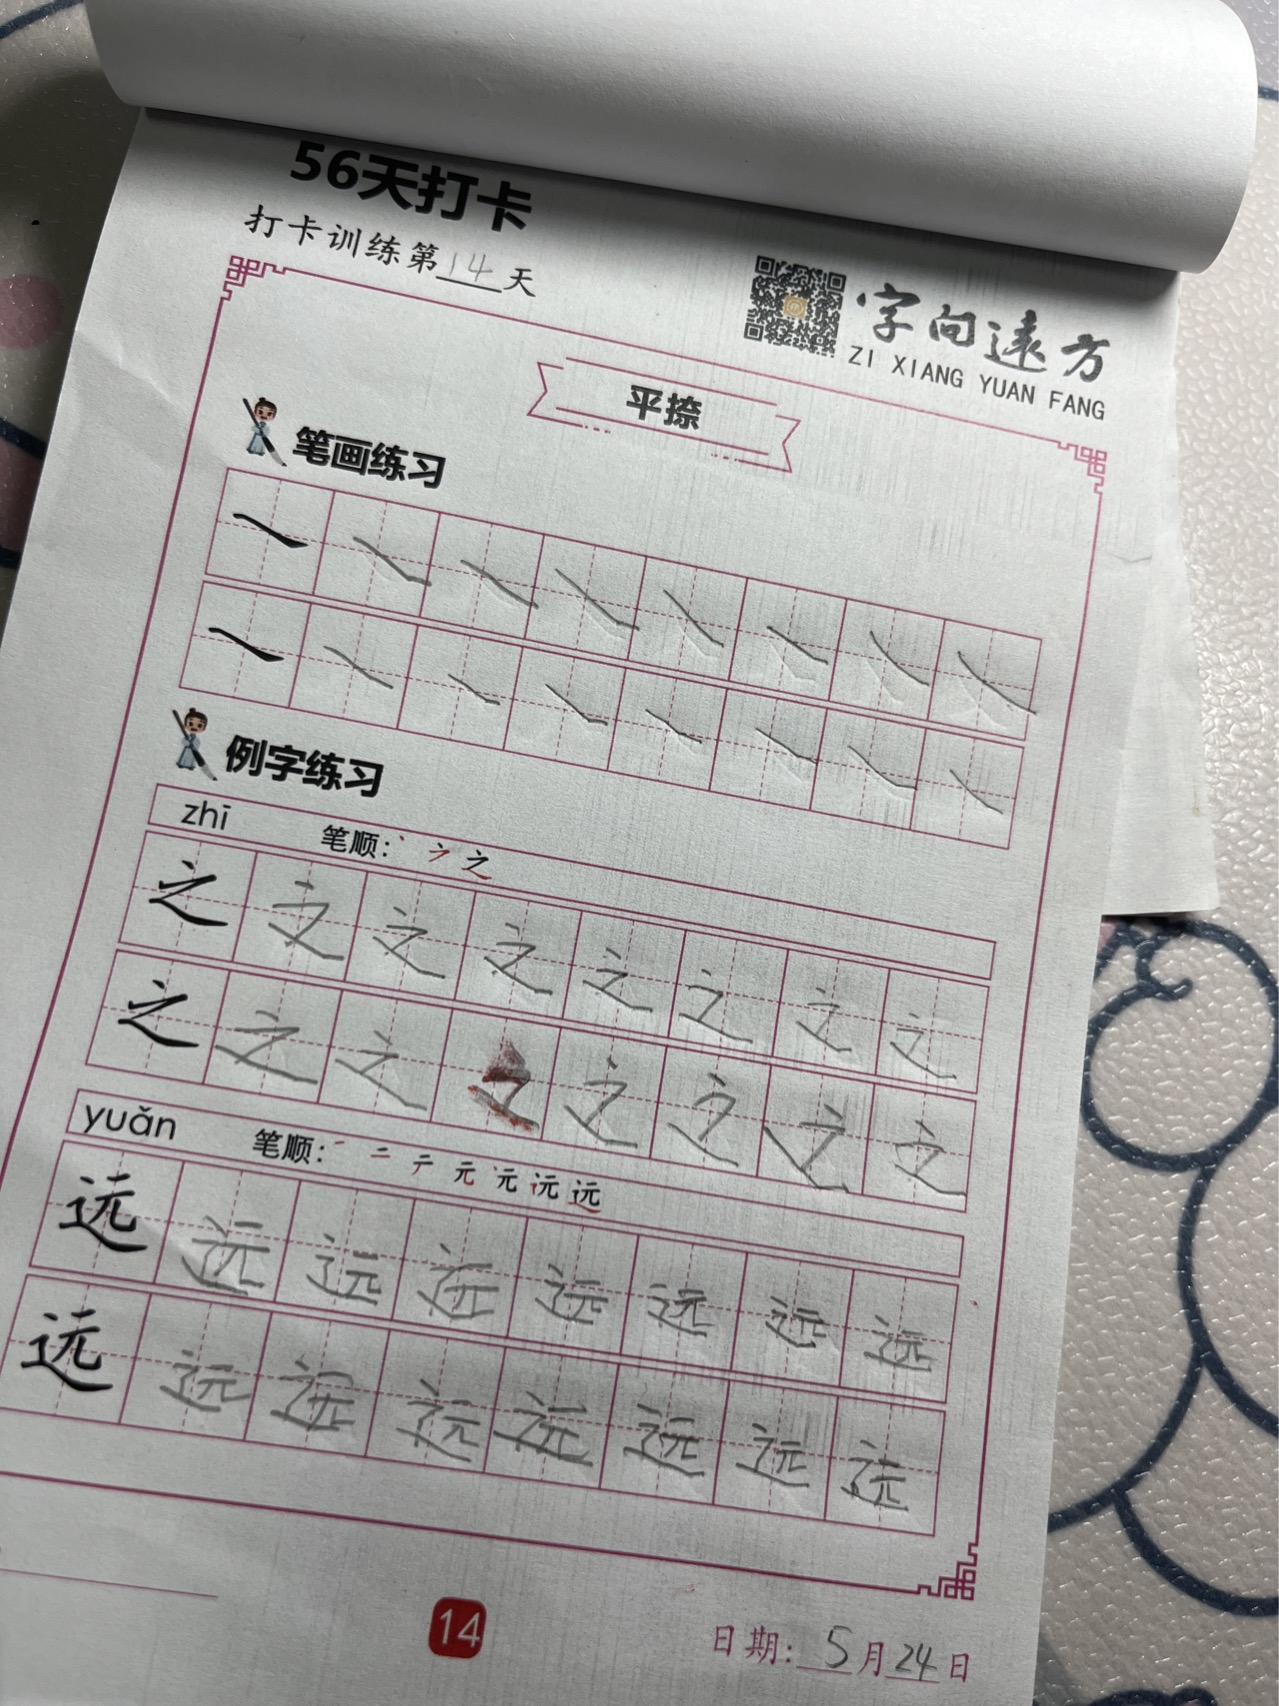 56天打卡
打卡训练第14天
字向远方
ZI XIANG YUAN FANG
平捺
笔画练习
例字练习
zhī 笔顺: 丶 ㇇ 之
之 之 之 之 之 之 之 之
之 之 之 之 之 之 之 之
yuǎn 笔顺: 一 二 テ 元 元 远 远
远 远 远 远 远 远 远 远
远 远 远 远 远 远 远 远
14
日期: 5月24日